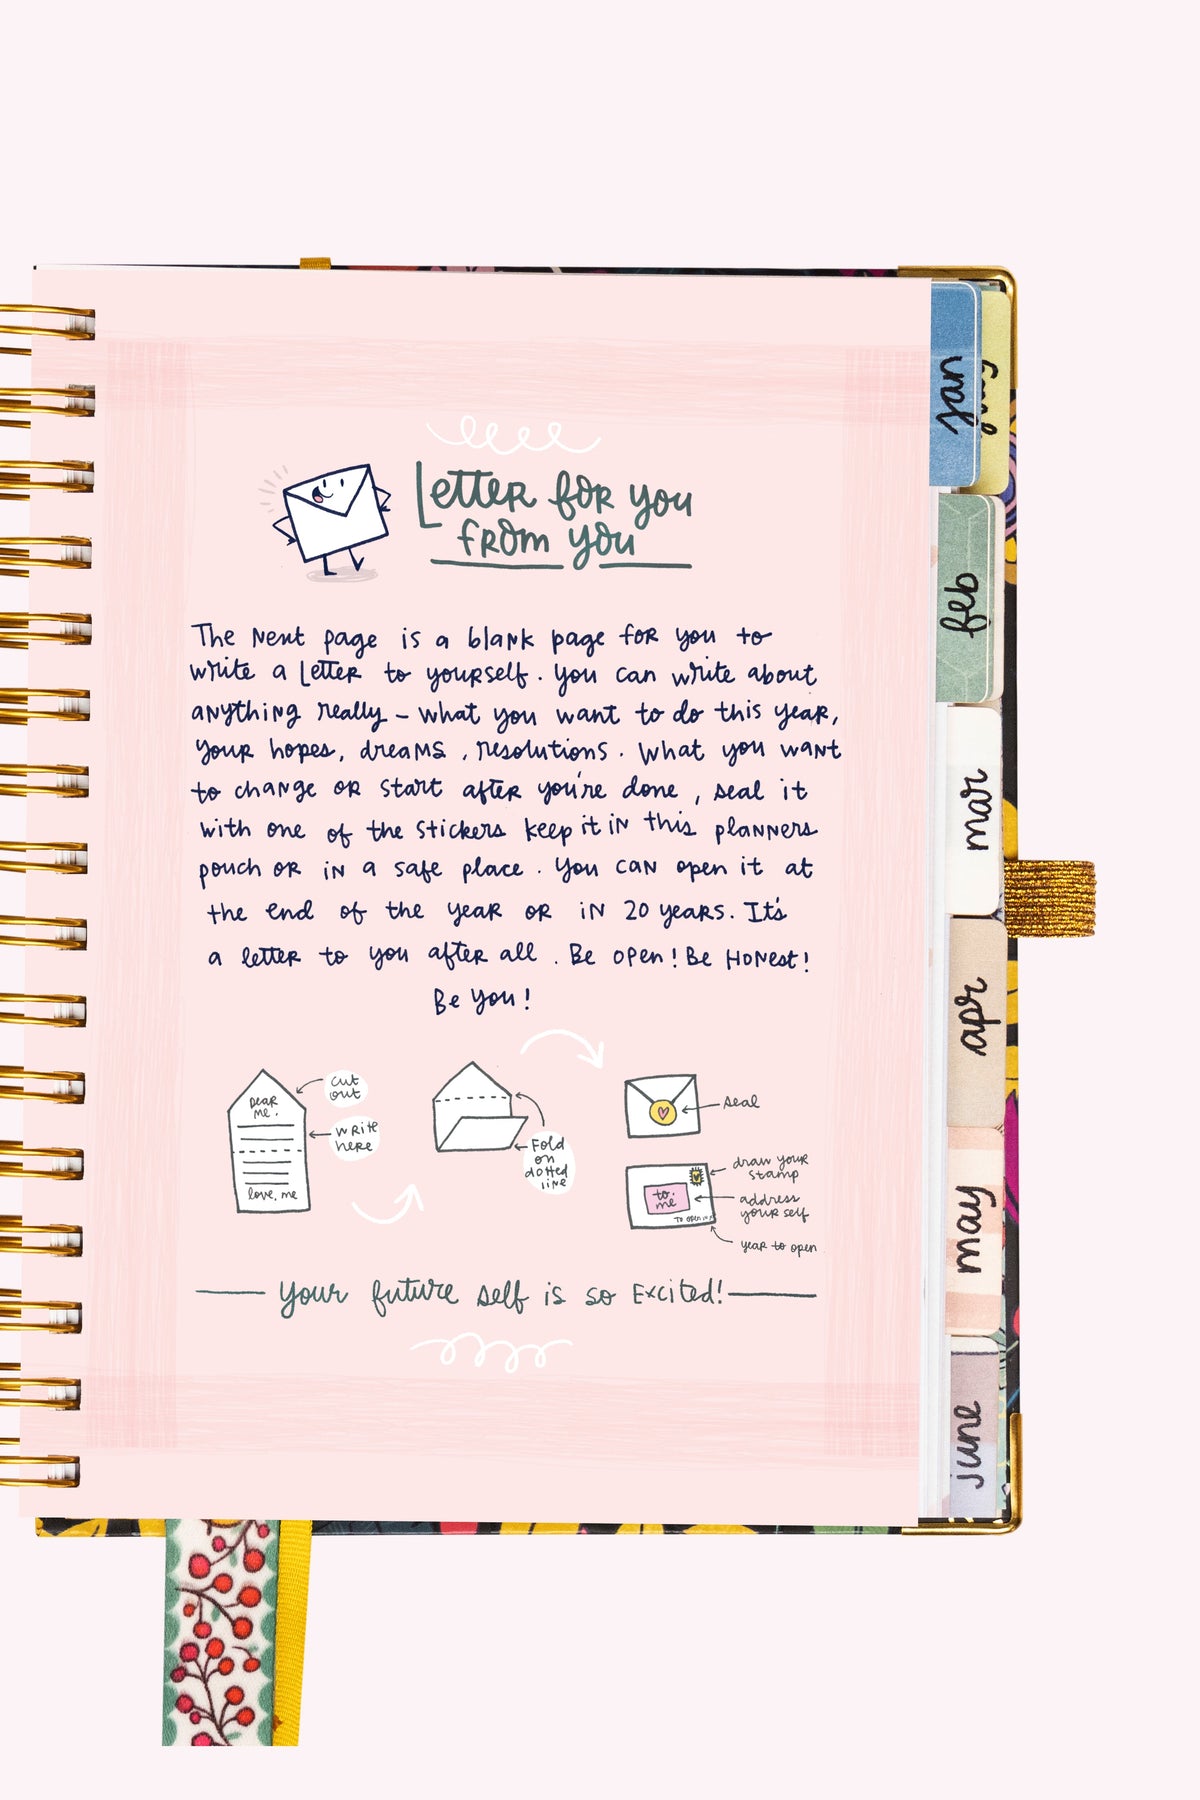 Letter for you
from you
The next page is a blank page for you to
write a letter to yourself. You can write about
anything really - what you want to do this year,
your hopes, dreams, resolutions. What you want
to change or start after you're done, seal it
with one of the stickers keep it in this planners
pouch or in a safe place. You can open it at
the end of the year or in 20 years. It's
a letter to you after all. Be open! Be Honest!
Be You!
cut
out
Dear
me,
write
here
love, me
Fold
on
dotted
line
seal
draw your
stamp
to:
me
address
your self
To open in
year to open
Your future self is so Excited!
jan
feb
mar
apr
may
june